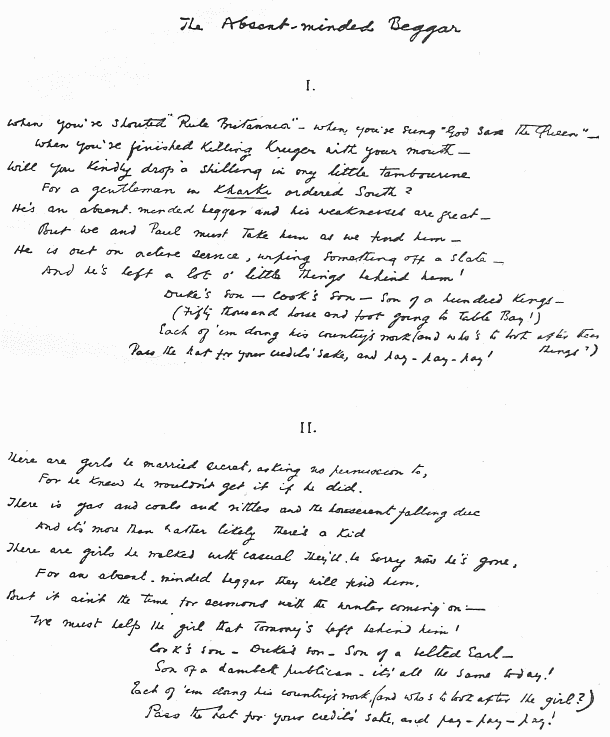 The Absent-minded Beggar
I.
When you've shouted "Rule Britannia" – when you've sung "God Save the Queen" –
When you've finished Killing Kruger with your mouth –
Will you Kindly drop a shilling in my little tambourine
For a gentleman in Kharki ordered South?
He's an absent-minded beggar and his weaknesses are great –
But we and Paul must take him as we find him –
He is out on active service, wiping something off a slate –
And he's left a lot o' little things behind him!
Duke's Son – Cook's Son – Son of a hundred Kings –
(Fifty thousand horse and foot going to Table Bay!)
Each of 'em doing his country's work (and who's to look after their
things?)
Pass the hat for your credit's sake, and pay – pay – pay!
II.
There are girls he married secret, asking no permission to,
For he knew he wouldn't get it if he did.
There is gas and coals and vittles and the houserent falling due
And it's more than rather likely there's a Kid
There are girls he walked with casual They'll be Sorry now he's gone,
For an absent-minded beggar they will find him.
But it ain't the time for sermons with the winter coming on –
We must help the girl that Tommy's left behind him!
Cook's Son – Duke's Son – Son of a belted Earl –
Son of a Lambeth publican – it's all the same today!
Each of 'em doing his country's work, (and who's to look after the girl?)
Pass the hat for your credit's sake, and pay – pay – pay!